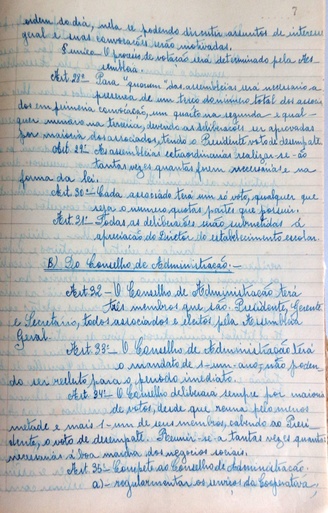 7
ordem do dia, nela se podendo discutir assuntos de interesse
geral e suas convocações serão motivadas.
§ único - O processo de votação será determinado pela As-
sembléia.
Art. 28º - Para "quorum" das assembléias será necessario a
presença de um terço do minimo total dos associa-
dos em primeira convocação, um quarto na segunda e qual-
quer número na terceira, devendo as deliberações ser aprovadas
por maioria dos associados, tendo o Presidente voto de desempate.
Art. 29º - As assembléias extraordinarias realizar-se-ão
tantas vêzes quantas forem necessárias e na
forma da lei.
Art. 30º - Cada associado terá um só voto, qualquer que
seja o numero quotas partes que possuir.
Art. 31º - Todas as deliberações serão submetidas á
apreciação do Diretor do estabelecimento escolar.
B) - Do Conselho de Administração. -
Art. 32 - O Conselho de Administração terá
três membros que são: Presidente, Gerente
e Secretário, todos associados e eleitos pela Assembléia
Geral.
Art. 33º - O Conselho de Administração terá
o mandato de 1 - um - ano, não poden
do ser reeleito para o periodo imediato.
Art. 34º - O Conselho deliberará sempre por maioria
de votos, desde que reuna pelo menos
metade e mais 1 - um de seus membros, cabendo ao Presi-
dente, o voto de desempate. Reunir-se-á tantas vêzes quanto
necessárias á boa marcha dos negocios sociais.
Art. 35º - Compete ao Conselho de Administração:
a) - regulamentar os serviços da Cooperativa,